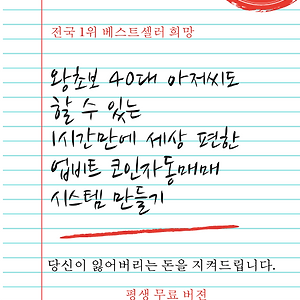 전국 1위 베스트셀러 희망
왕초보 40대 아저씨도
할 수 있는
1시간만에 세상 편한
업비트 코인자동매매
시스템 만들기
당신이 잃어버리는 돈을 지켜드립니다.
평생 무료 버전